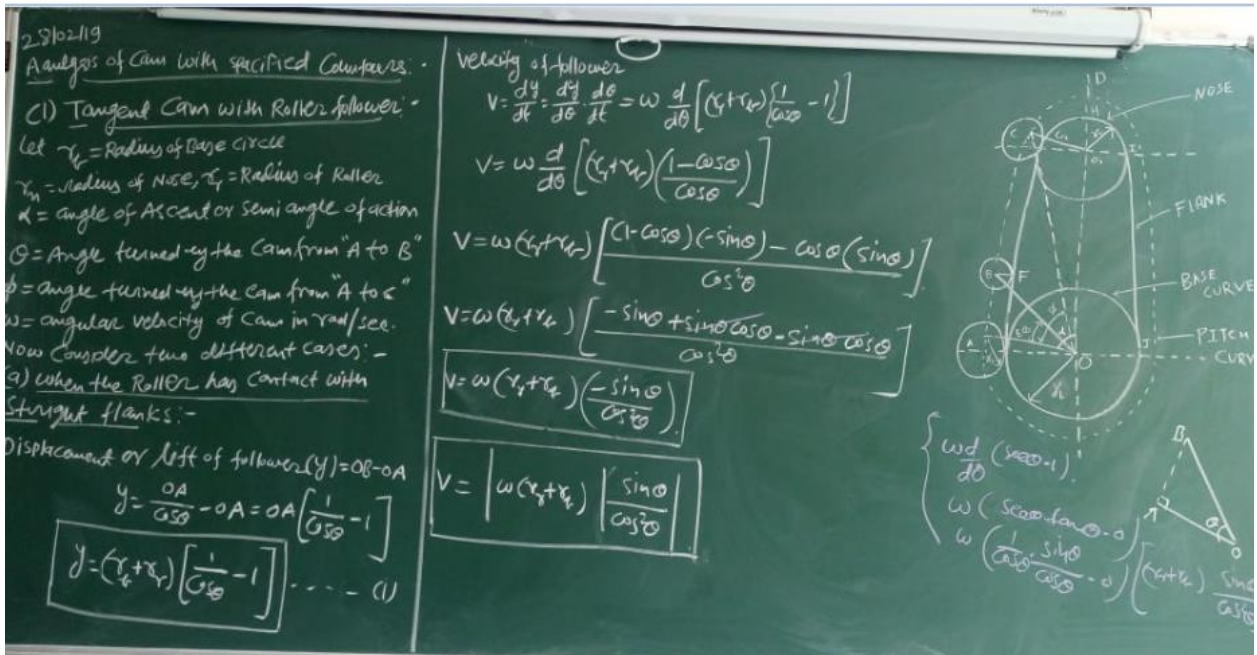 28/02/19
Aanlysis of Cam with specified Countours:-
(1) Tangent Cam with Roller follower:-
Let r_b = Radius of Base circle
r_n = radius of Nose, r_r = Radius of Roller
α = angle of Ascent or semi angle of action
θ = Angle turned by the Cam from "A to B"
ϕ = angle turned by the Cam from "A to C"
ω = angular velocity of Cam in rad/sec.
Now Consider two different cases:-
(a) when the Roller has Contact with
Straight flanks:-
Displacement or lift of follower (y) = OB-OA
y = OA/Cosθ - OA = OA [1/Cosθ - 1]
y = (r_b + r_r) [1/Cosθ - 1] ----- (1)
Velocity of follower
V = dy/dt = dy/dθ · dθ/dt = ω d/dθ [(r_r + r_b) {1/cosθ - 1}]
V = ω d/dθ [(r_r + r_b) (1-cosθ / cosθ)]
V = ω (r_r + r_b) [(1-cosθ)(-sinθ) - cosθ (sinθ) / cos²θ]
V = ω (r_r + r_b) [-sinθ + sinθ cosθ - sinθ cosθ / cos²θ]
V = ω (r_r + r_b) (-sinθ / cos²θ)
V = |ω (r_r + r_b)| |sinθ / cos²θ|
D
H
NOSE
C
O₁
I'
FLANK
B
F
α
BASE
CURVE
A
O
J
PITCH
CURV
r_b
ωd/dθ (secθ-1)
ω (secθ tanθ - 0)
ω (1/cosθ · sinθ/cosθ - 0) [(r_r + r_b) sinθ/cos²θ
B
θ
O